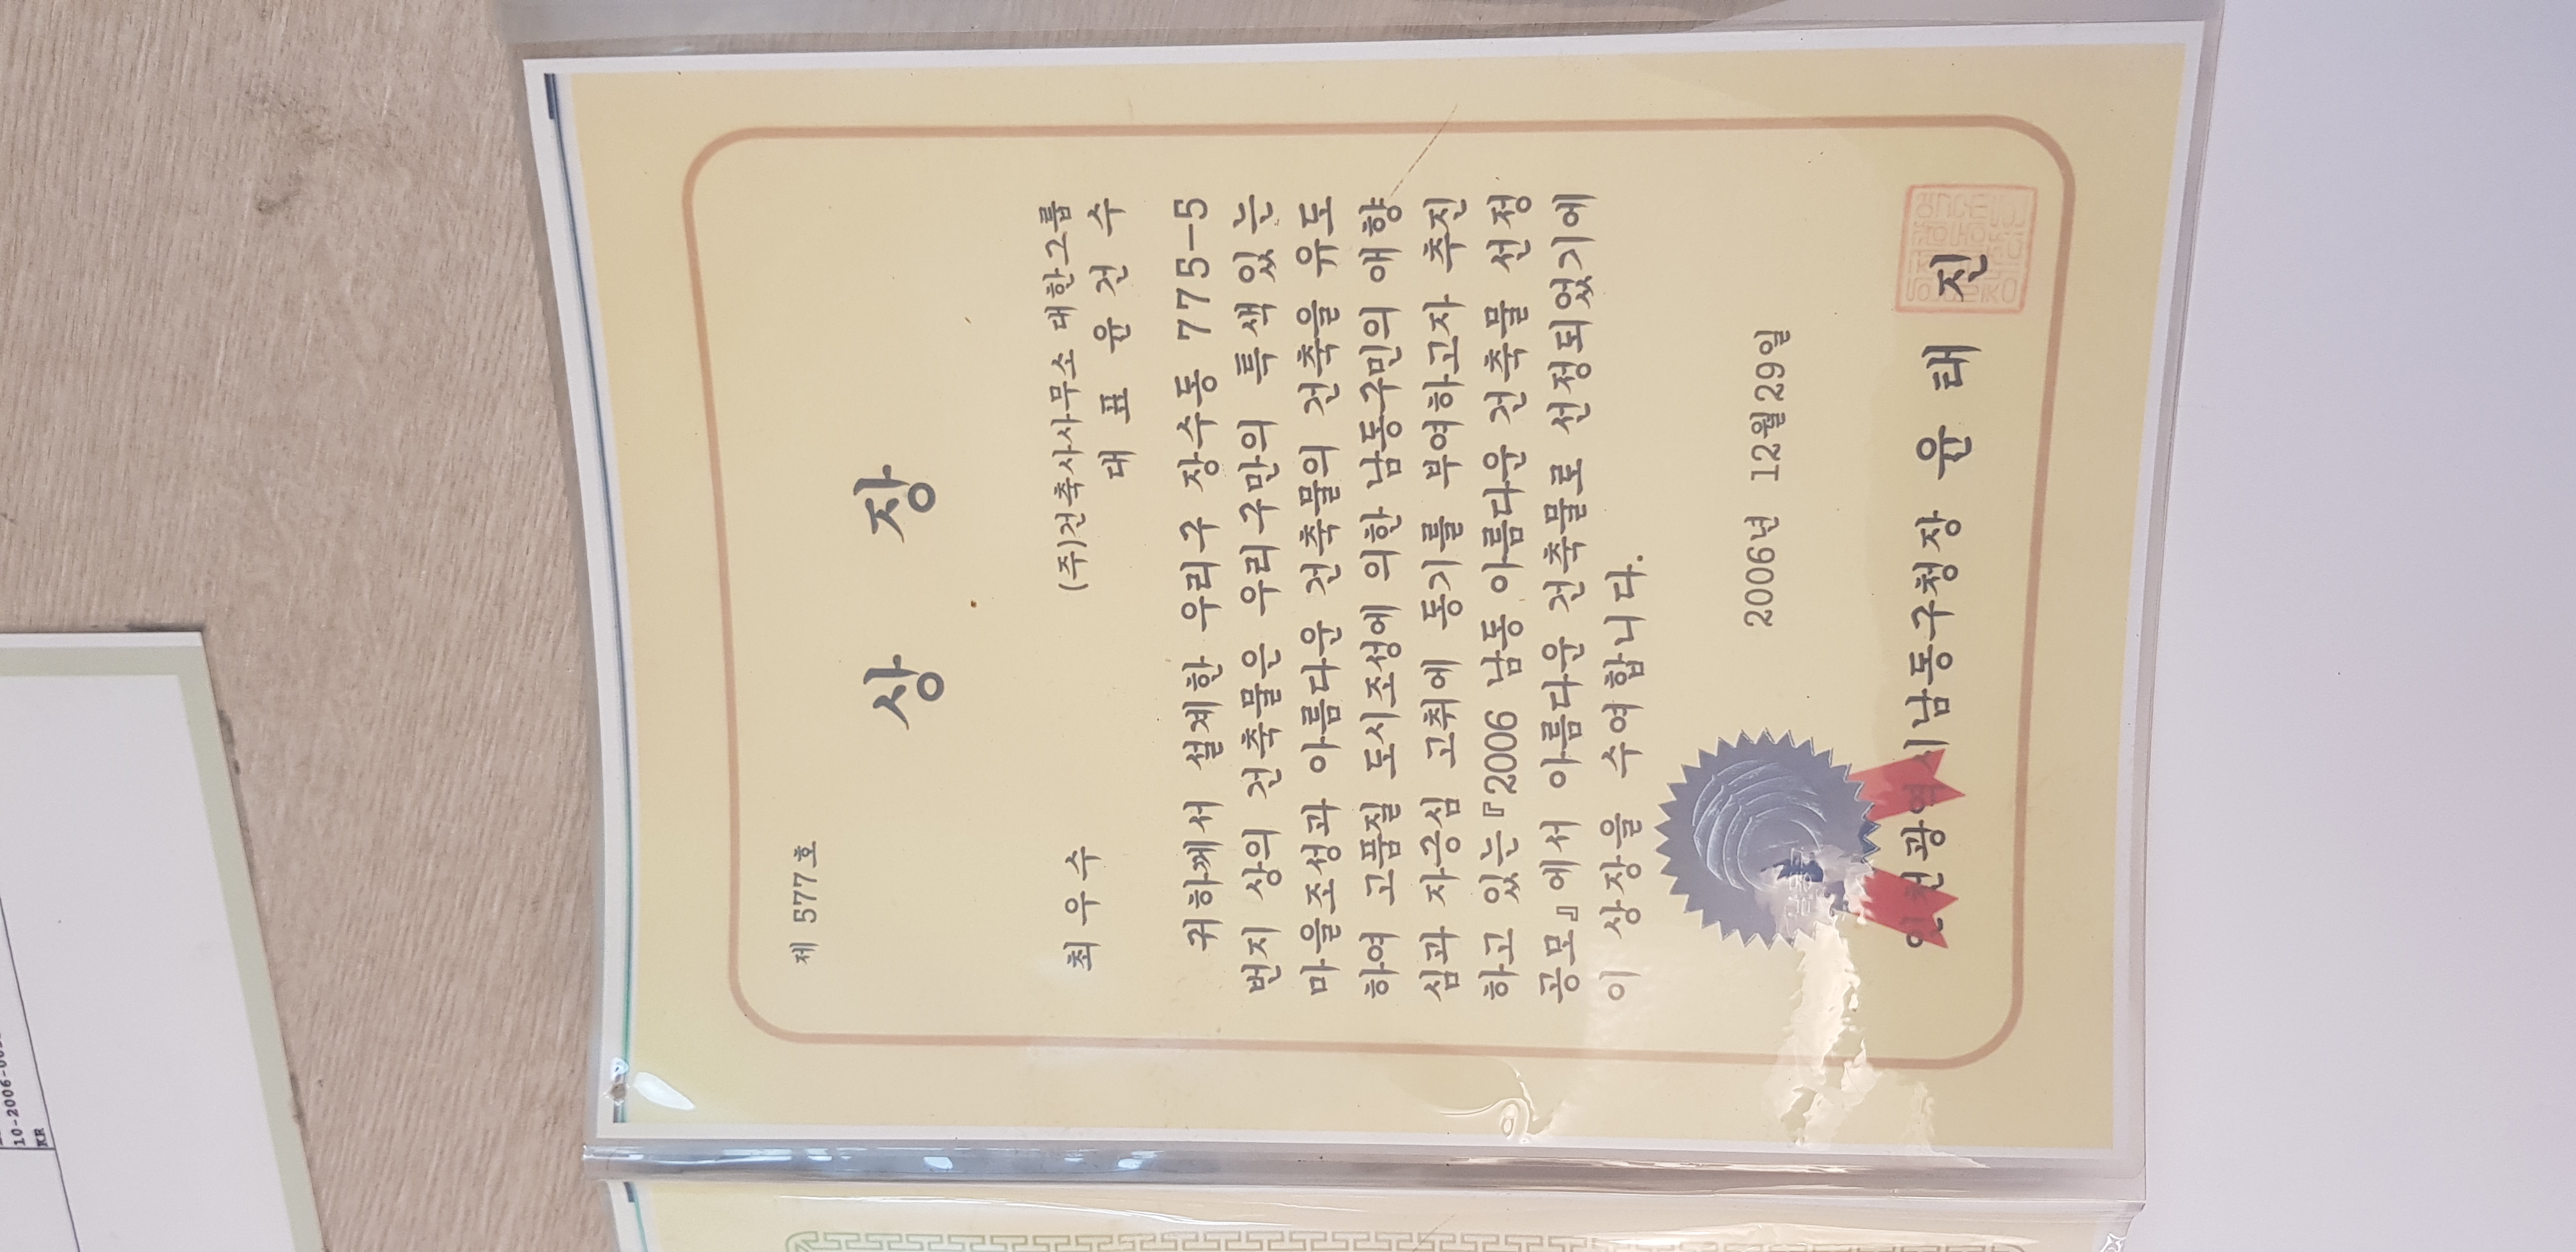 제 577호
상 장
최 우 수
(주)건축사사무소 대한그룹
대 표 윤 건 수
귀하께서 설계한 우리구 장수동 775-5
번지 상의 건축물은 우리구만의 특색있는
마을조성과 아름다운 건축물의 건축을 유도
하여 고품질 도시조성에 의한 남동구민의 애향
심과 자긍심 고취에 동기를 부여하고자 추진
하고 있는『2006 남동 아름다운 건축물 선정
공모』에서 아름다운 건축물로 선정되었기에
이 상장을 수여합니다.
2006년 12월29일
인천광역시남동구청장 윤 태 진
KR